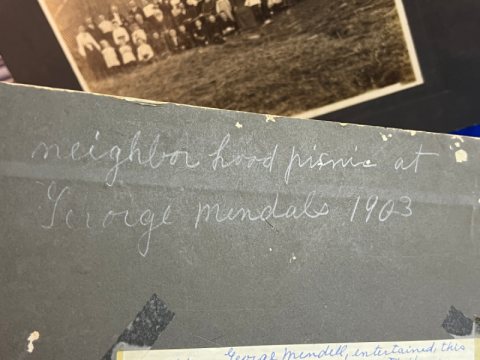 neighbor hood pisnic at
Geroige Mendals 1903
George Mendell, entertained, this